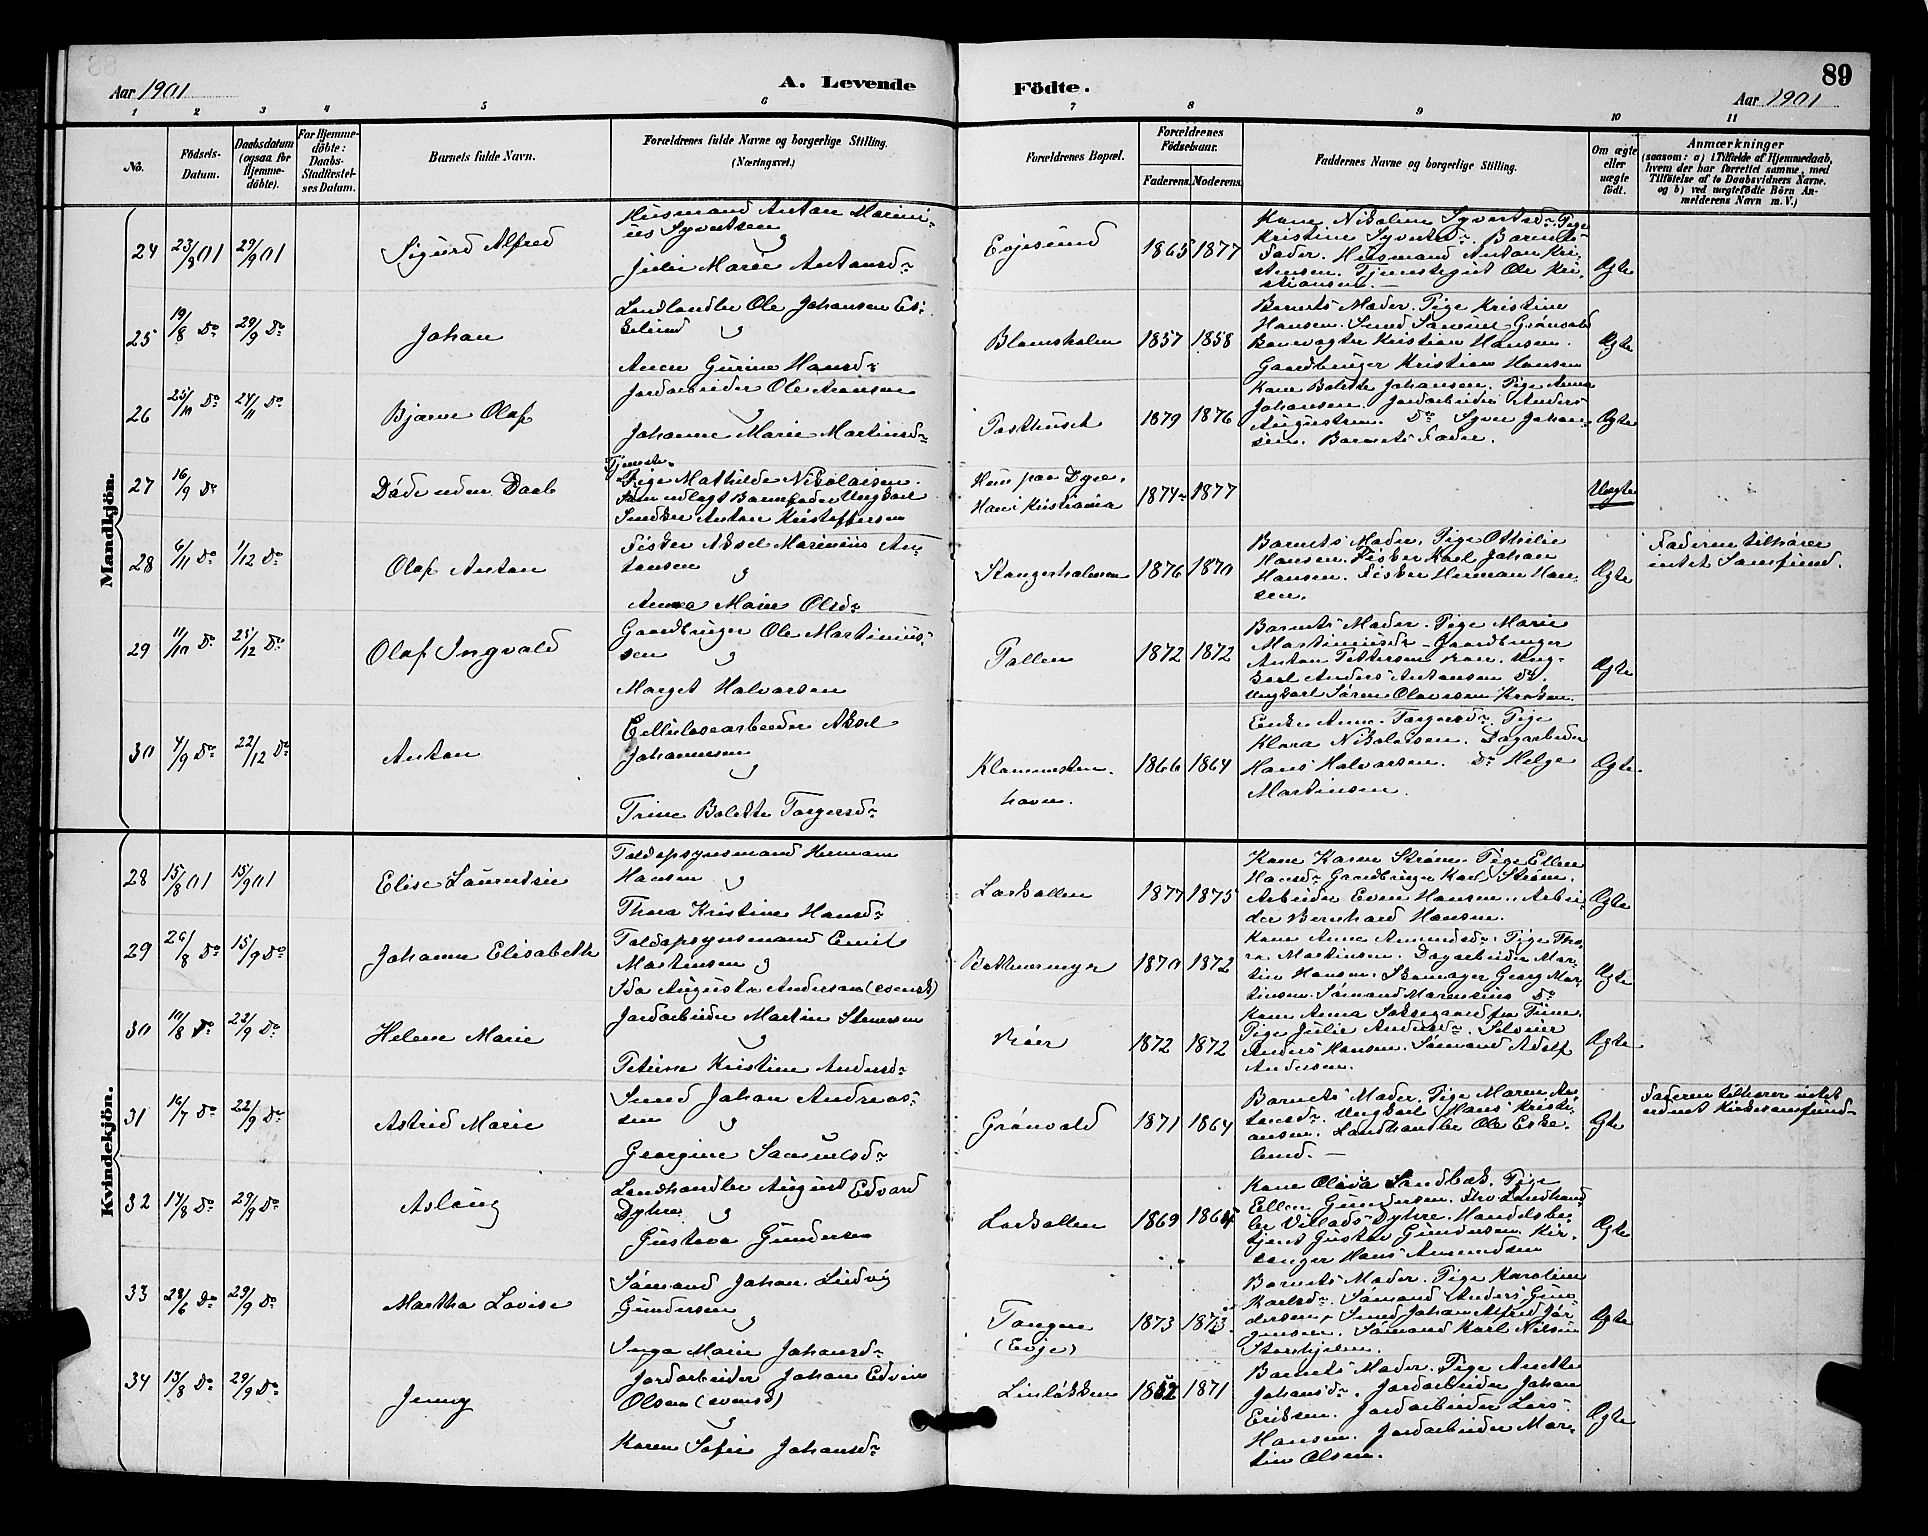 89
Aar 1901
A. Levende Födte.
Aar 1901
1 2 3 4 5 6 7 8 9 10 11
No.
Födsels-
Datum.
Daabsdatum
(ogsaa for
Hjemme-
döbte).
For Hjemme-
döbte:
Daabs-
Stadfæstel-
ses Datum.
Barnets fulde Navn.
Forældrenes fulde Navne og borgerlige Stilling.
(Næringsvei.)
Forældrenes Bopæl.
Forældrenes
Födselsaar.
Faderens. Moderens.
Faddernes Navne og borgerlige Stilling.
Om ægte
eller
uægte
født.
Anmærkninger
(saasom: a) i Tilfælde af Hjemmedaab,
hvem der har forrettet samme, med
Tilföielse af to Daabsvidners Navne.
og b) ved uægtefödte Börn An-
melderens Navn m. V.)
Mandkjön.
24 23/8 01 29/9 01
Sigurd Alfred
Husmand Anton Marini-
us Syvertsen
og
Julie Marie Antonsdr
Evjesund
1865 1877
Kone Nikoline Syvertsdr. Pige
Kristine Syvertsdr. Barnets
Fader. Husmand Anton Kri-
stensen. Tjenstegut Ole Kri-
stiansen. —
Ægte
25 19/8 Do 29/9 Do
Johan
Landhandler Ole Johansen Es-
kelund og
Anen Gurine Hansdr
Blomsholm
1857 1858
Barnets Moder. Pige Kristine
Hansen. Smed Samuel Grönvold
Banevogter Kristian Hansen.
Gaardbruger Kristian Hansen
Ægte
26 25/10 Do 24/11 Do
Bjarne Olaf
Jordarbeider Ole Hansen
og
Johanne Marie Martinsdr
Posthuset
1879 1876
Kone Bolette Johansen. Pige Anna
Johansen. Jordarbeider Anders
Augustsen. Do Syver Johan-
sen. Barnets Fader.
Ægte
27 16/9 Do
Döde uden Daab
Tjeneste-
Pige Mathilde Nikolaisen.
Som udlagt Barnefader Ungkarl
Snedker Anton Kristoffersen
Hun paa Dyre.
Han i Kristiania
1874 1877
Uægte
28 6/11 Do 1/12 Do
Olaf Anton
Fisker Aksel Marinius An-
tonsen
og
Anna Marie Olsdr
Stangerholmen
1876 1870
Barnets Moder. Pige Othilie
Hansen. Fisker Karl Johan
Hansen. Fisker Herman Han-
sen.
Ægte
Faderen tilhører
intet Samfund.
29 11/10 Do 25/12 Do
Olaf Ingvald
Gaardbruger Ole Martinius-
sen og
Marget Halvorsen
Pollen
1872 1872
Barnets Moder. Pige Marie
Martiniusdr. Gaardbruger
Anton Pettersen. Ung-
karl Anders Antonsen Do.
Ungkarl Sören Olavesen Kroken.
Ægte
30 4/9 Do 22/12 Do
Anton
Cellulosearbeider Aksel
Johannesen
og
Trine Bolette Torgersdr
havn.
1866 1864
Enke Anne Torgersdr. Pige
Klara Nikolaisen. Dagarbeider
Hans Halvorsen. Do Helge
Martinsen.
Ægte.
Kvindekjön.
28 15/8 01 15/9 01
Elise Laurentsie
Toldopsynsmand Hermann
Hansen og
Thora Kristine Hansdr
Larkollen
1877 1875
Kone Karen Ström. Pige Ellen
Hansdr. Gaardbruger Karl Ström.
Arbeider Even Hansen. Arbei-
der Bernhard Hansen.
Ægte
29 26/8 Do 15/9 Do
Johanne Elisabeth
Toldopsynsmand Emil
Martinsen og
Ida Augusta Anderson (svensk)
1870 1872
Kone Anna Amundsdr. Pige Tho-
ra Martinsen. Dagarbeider Mar-
tin Hansen. Skomager Georg Mar-
tinsen. Sömand Marensius Do
Ægte
30 10/8 Do 22/9 Do
Helene Marie
Jordarbeider Martin Stenersen
og
Petrine Kristine Andersdr
Röer
1872 1872
Pige Julie Andersdr.
Anders Hansen. Sömand Adolf
Andersen.
Ægte
31 16/7 Do 22/9 Do
Astrid Marie
Smed Johan Andreas-
sen og
Georgine Samuelsdr
Grönvold
1871 1864
Barnets Moder. Pige Maren An-
tonsdr. Ungkarl Hans Kristi-
ansen. Landhandler Ole Eske-
lund. —
Ægte
Faderen tilhører intet
Kirkesamfund.
32 17/8 Do 29/9 Do
Aslaug
Landhandler August Edvard
Dyhre og
Gustava Gundersen
Larkollen
1869 1864
Kone Olava Sandbæk. Pige
Ellen Gundersen. Fhv Landhand-
ler Villads Dyhre. Handelsbe-
tjent Gustav Gundersen. Kir-
sanger Hans Amundsen
Ægte
33 28/6 Do 29/9 Do
Martha Lovise
Sömand Johan Ludvig
Gundersen
og
Inga Marie Johansdr
Tangen
(Evje)
1873 1873
Barnets Moder. Pige Karoline
Karlsdr. Sömand Anders Gun-
dersen, Smed Johan Alfred Jör-
gensen. Sömand Karl Nilsen
Ægte
34 13/8 Do 29/9 Do
Jenny
Jordarbeider Johan Edvin
Olsen (svensk)
og
Karen Sofie Johansdr
Linlökken
1871
Barnets Moder. Pige Anette
Johansdr. Jordarbeider Johan
Eriksen. Jordarbeider Lars
Hansen. Jordarbeider Mar-
tin Olsen.
Ægte